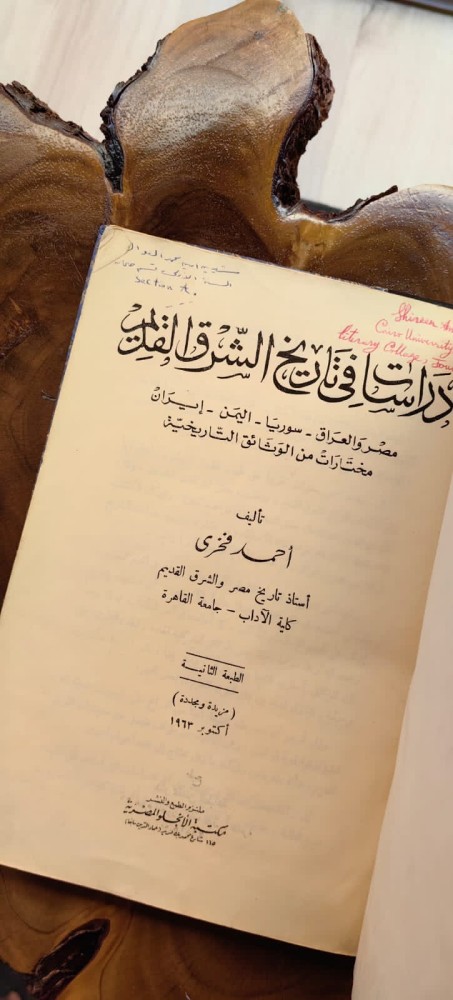 Section A.
Shireen
Cairo University
literary College,
دراسات في تاريخ الشرق القديم
مصر والعراق - سوريا - اليمن - إيران
مختارات من الوثائق التاريخية
تأليف
أحمد فخرى
أستاذ تاريخ مصر والشرق القديم
كلية الآداب - جامعة القاهرة
الطبعة الثانية
( مزيدة ومجددة )
أكتوبر ١٩٦٣
ملتزم الطبع والنشر
مكتبة الأنجلو المصرية
١٦٥ شارع محمد بك فريد